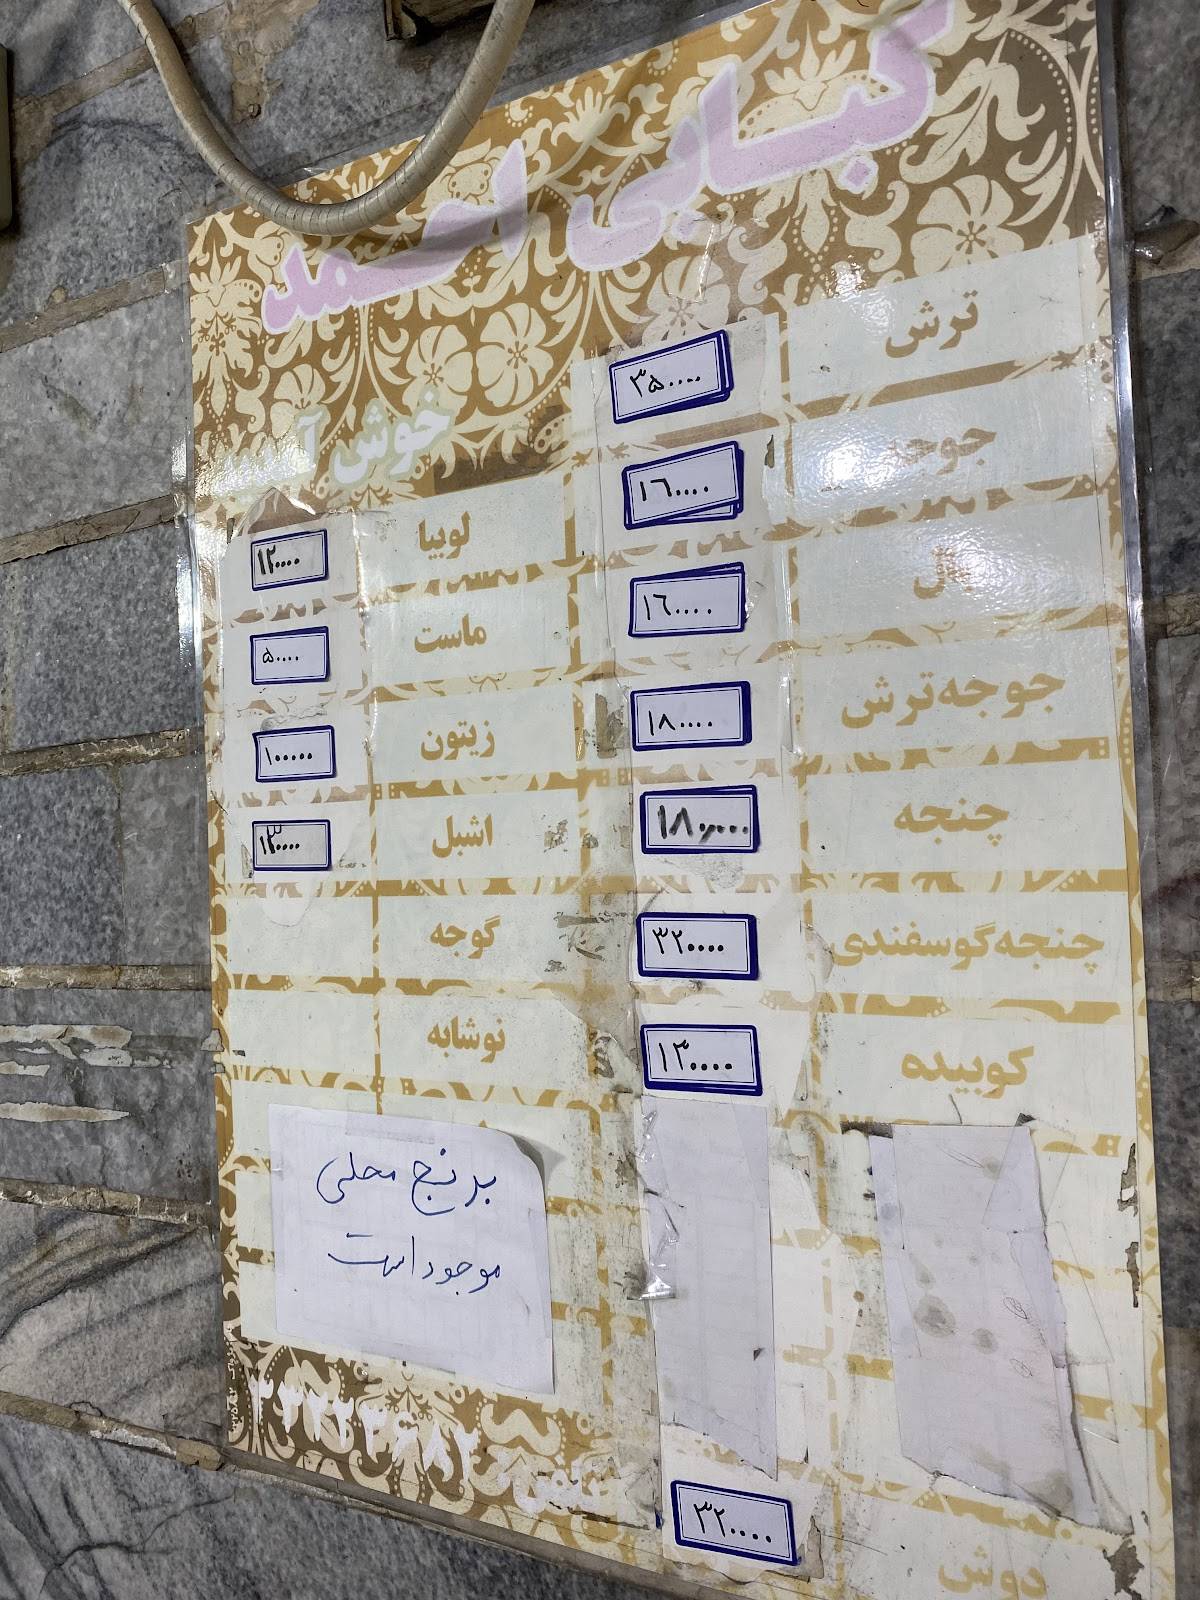 کبابی احمد
خوش آ
ترش ۳۵۰۰۰۰
جوجه ۱۶۰۰۰۰
بال ۱۶۰۰۰۰
جوجه ترش ۱۸۰۰۰۰
چنجه ۱۸۰,۰۰۰
چنجه گوسفندی ۳۲۰۰۰۰
کوبیده ۱۳۰۰۰۰
دوش ۳۲۰۰۰۰
لوبیا ۱۲۰۰۰۰
ماست ۵۰۰۰۰
زیتون ۱۰۰۰۰۰
اشبل ۱۳۰۰۰۰
گوجه
نوشابه
برنج محلی
موجود است
تلفن: ۳۳۲۲۳۶۸۲